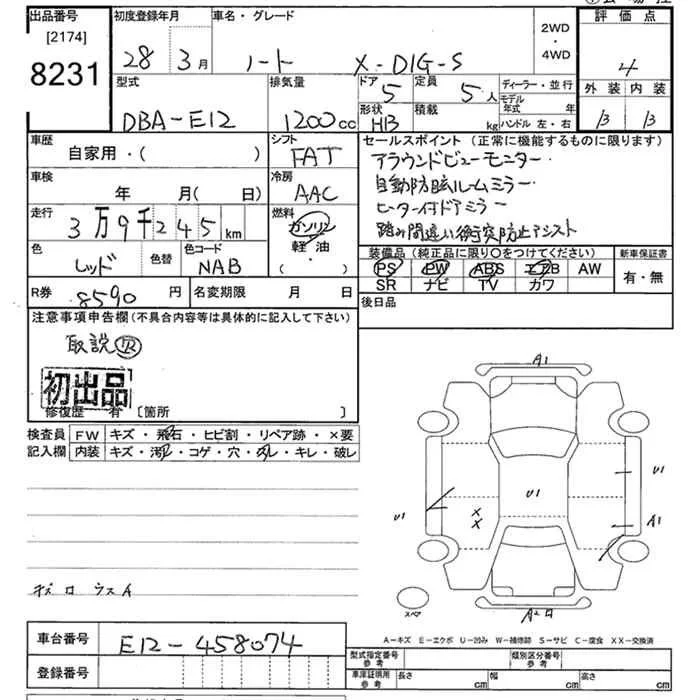 出品番号
[2174]
8231
初度登録年月
28年3月
車名・グレード
ノート X-DIG-S
2WD
・
4WD
評価点
4
外装 内装
B B
型式
DBA-E12
排気量
1200cc
ドア
5
定員
5人
形状
HB
積載
kg
ディーラー・並行
モデル年式 年
ハンドル 左・右
車歴
自家用・( )
シフト
FAT
車検
年 月( 日)
冷房
AAC
走行
3万9千245km
燃料
ガソリン
軽油・
( )
色
レッド
色替
色コード
NAB
R券 8590円
名変期限 月 日
セールスポイント(正常に機能するものに限ります)
アラウンドビューモニター・
自動防眩ルームミラー・
ヒーター付ドアミラー
踏み間違い衝突防止アシスト
装備品(純正品に限り○をつけてください)
PS PW ABS エアB AW
SR ナビ TV カワ
新車保証書
有・無
後日品
注意事項申告欄(不具合内容等は具体的に記入して下さい)
取説
初出品
修復歴 有 [箇所 ]
検査員記入欄
FW キズ・飛石・ヒビ割・リペア跡・×要
内装 キズ・汚レ・コゲ・穴・スレ・キレ・破レ
A1
U1
U1
U1
A1
X
X
スペア
A2
A-キズ E-エクボ U-凹み W-補修跡 S-サビ C-腐食 XX-交換済
車台番号
E12-458074
登録番号
型式指定番号 参考
類別区分番号 参考
車庫証明用 参考
長さ cm
幅 cm
高さ cm